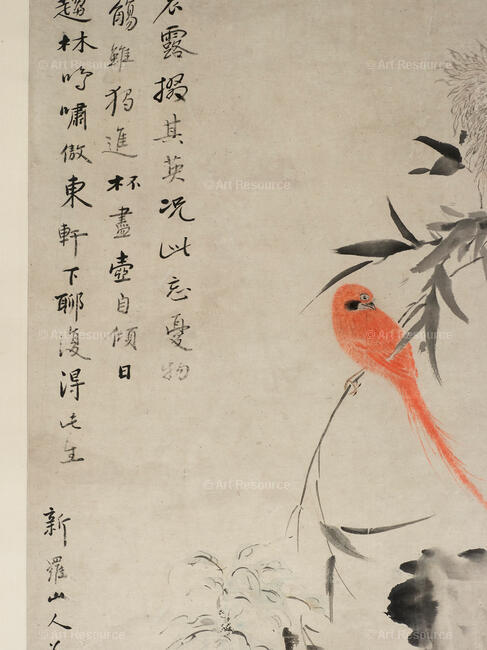 露掇其英况此忘憂物
觴雖獨進杯盡壺自傾日
趨林鳴嘯傲東軒下聊復得此生
新羅山人
© Art Resource
© Art Resource
© Art Resource
© Art Resource
© Art Resource
© Art Resource
© Art Resource
© Art Resource
© Art Resource
© Art Resource
© Art Resource